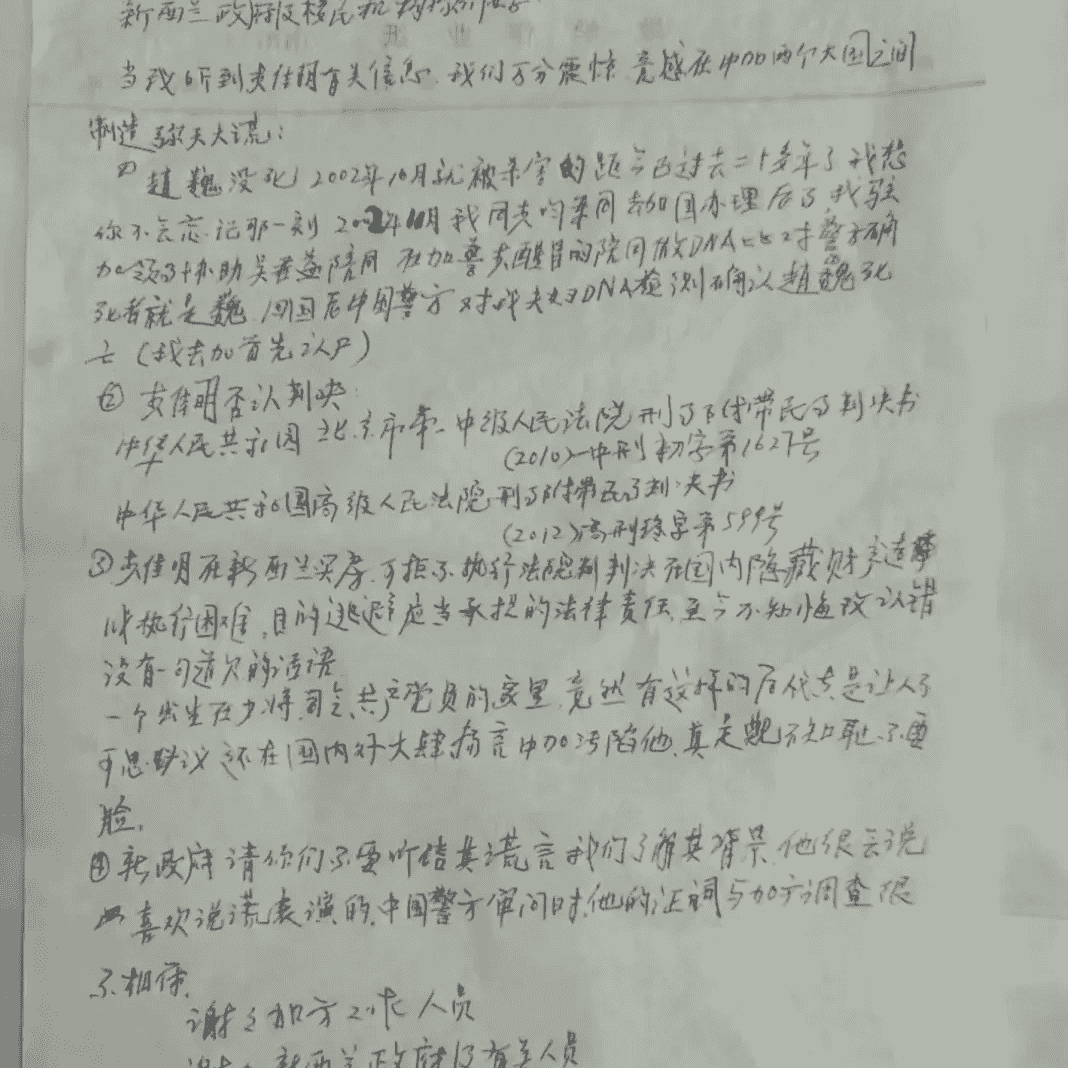 新西兰政府及移民机构
当我听到李佳明有关信息,我们万分震惊,竟感在中加两个大国之间
制造弥天大谎:
① 趙巍没死 2002年10月就被杀害的距今已过去二十多年了我想
你不会忘记那一刻 2002年11月我同 同去加国办理后事我驻
加领事协助吴 陪同 在加警 的陪同做DNA比对警方确
死者就是巍,回国后中国警方对我夫妇DNA检测确认趙巍死
亡(我去加首先认尸)
② 李佳明否认判决
中华人民共和国北京市第一中级人民法院刑事附带民事判决书
(2010)一中刑初字第1627号
中华人民共和国高级人民法院刑事附带民事判决书
(2012)高刑终字第599号
③李佳明在新西兰买房,可拒不执行法院判决在国内隐藏财产造
成执行困难,目的逃避应当承担的法律责任至今不知悔改认错
没有一句道欠的话语
一个出生在少将司令共产党员的家里,竟然有这样的后代真是让人不
可思议 还在国内外大肆扬言中加污陷他,真是 不知耻,不要
脸,
④新政府请你们不要听信其谎言我们了解其背景,他很会说
喜欢说谎表演的,中国警方审问时,他的证词与加方调查很
不相符,
谢谢加方工作人员
新西兰政府及有关人员